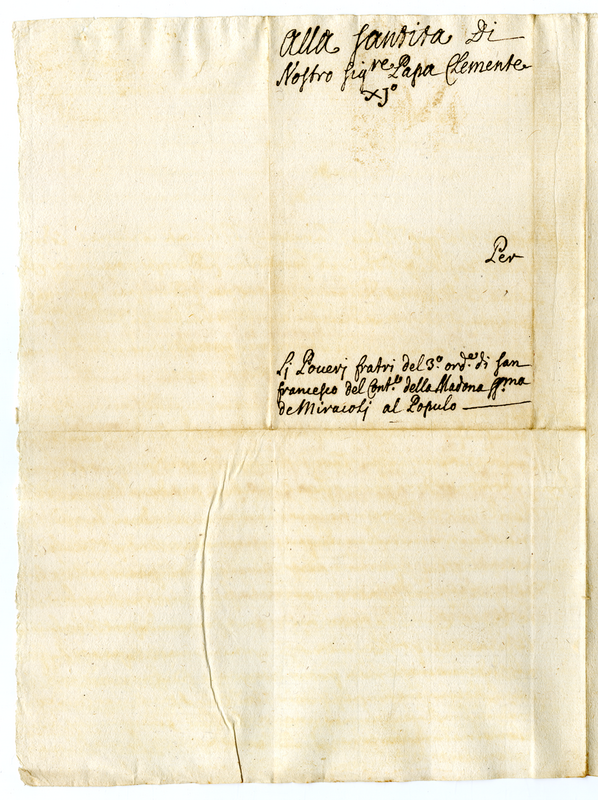 Alla Santita Di
Nostro Sig.re Papa Clemente
XJ°
Per
Lj Poverj fratri del 3.° ord.e di San
francesco del Conv.to della Madona SS.ma
de Miracolj al Populo